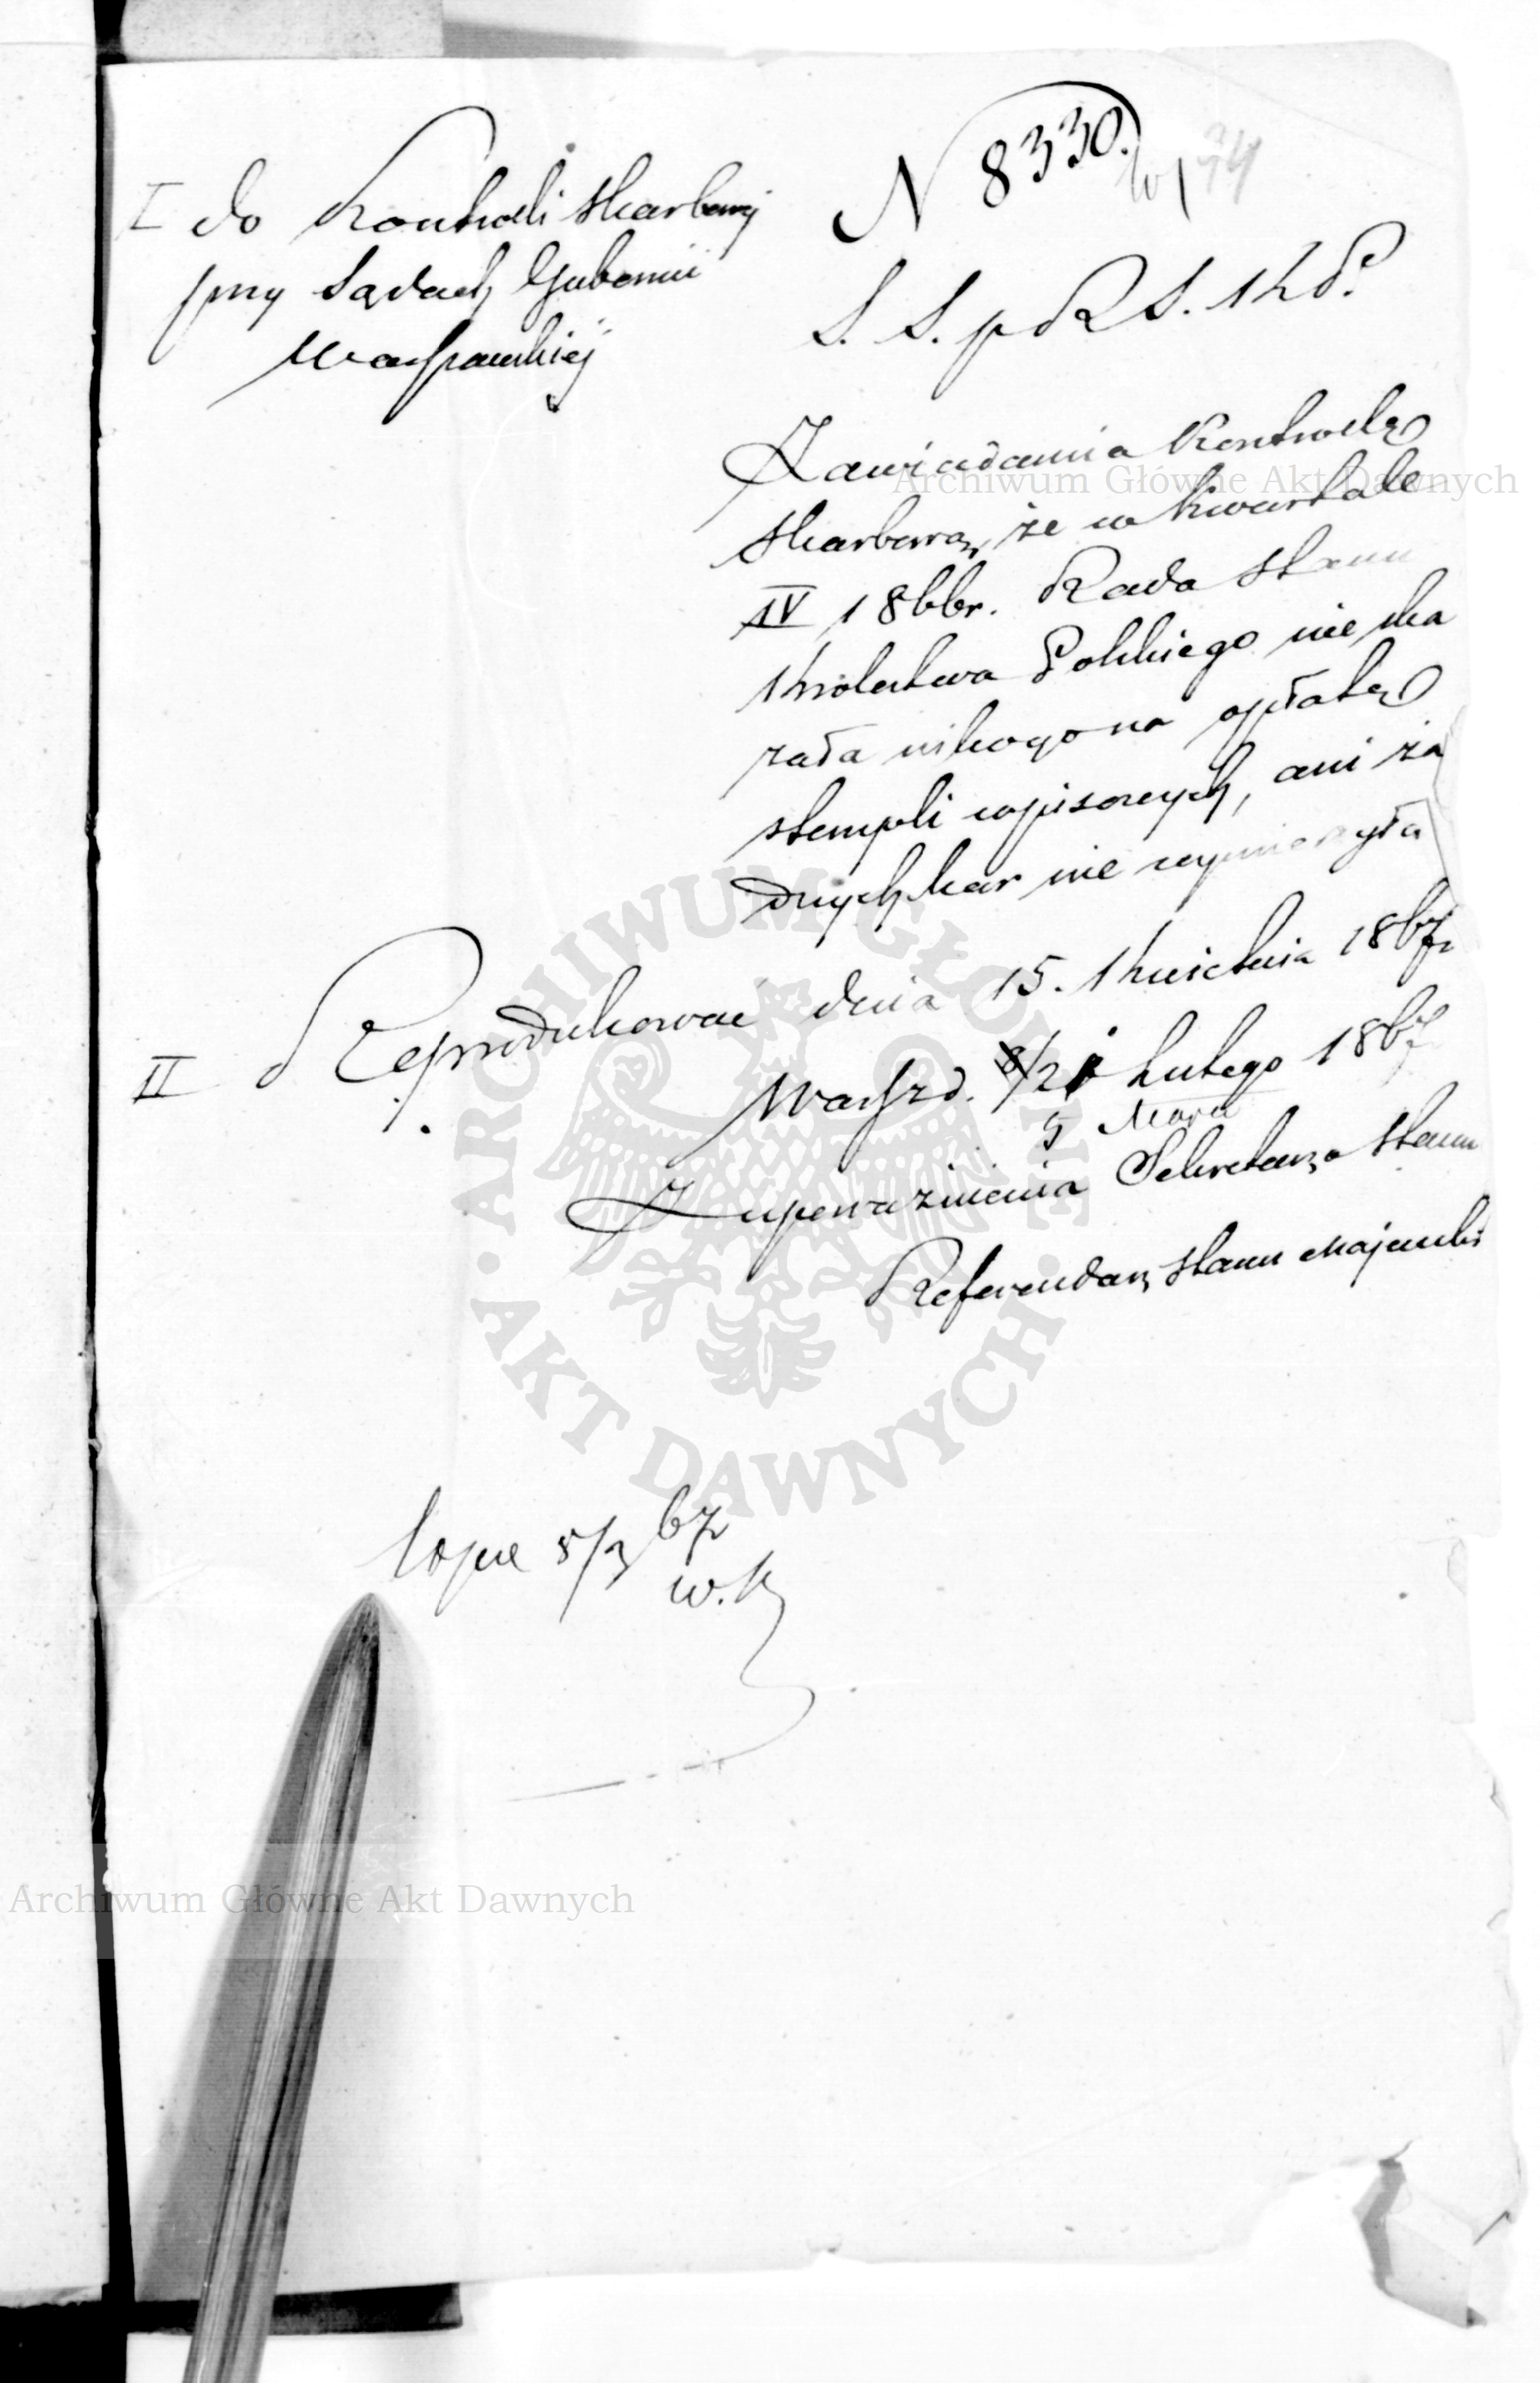 N 8330.
I do Kontroli Skarbowej
przy Sądach Gubernii
Warszawskiej
S. S. p R S. K P.
Zawiadamia Kontrolę
Skarbową, że w kwartale
IV 1866r. Rada Stanu
Królestwa Polskiego nie ska
zała nikogo na opłatę
stempli wpisowych, ani ża
dnych kar nie wymierzyła
II Reprodukować dnia 15. Kwietnia 1867r
Warsz. d. 8/21 Lutego 1867
5 Marca
Z upoważnienia Sekretarza Stanu
Referendarz Stanu Majewski
8/3 67
w. K
Archiwum Główne Akt Dawnych
ARCHIWUM GŁÓWNE · AKT DAWNYCH ·
Archiwum Główne Akt Dawnych